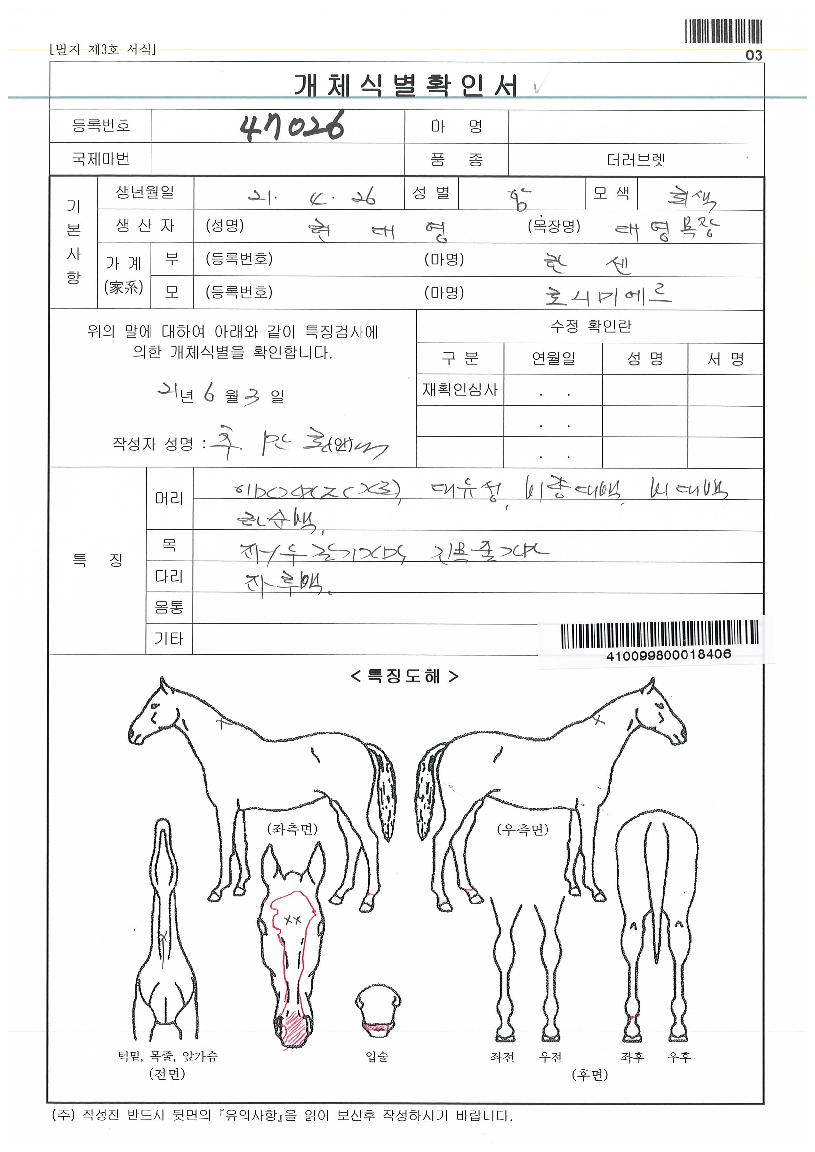 [별지 제3호 서식]
03
개체식별확인서
등록번호 47026 마 명
국제마번 품 종 더러브렛
기본사항
생년월일 21. 4. 26 성 별 암 모 색 회색
생 산 자 (성명) 현 대 영 (목장명) 대영목장
가 계 (家系) 부 (등록번호) (마명) 한 센
모 (등록번호) (마명) 로시미에르
위의 말에 대하여 아래와 같이 특징검사에
의한 개체식별을 확인합니다.
21년 6월 3일
작성자 성명 : (인)
수정 확인란
구 분 연월일 성 명 서 명
재확인심사 . .
. .
. .
특 징
머리 대유성, 비대백
목
다리 좌후백.
몸통
기타
410099800018406
< 특징도해 >
(좌측면) (우측면)
턱밑, 목줄, 앞가슴 입술 좌전 우전 좌후 우후
(전면) (후면)
(주) 작성전 반드시 뒷면의 『유의사항』을 읽어 보신후 작성하시기 바랍니다.